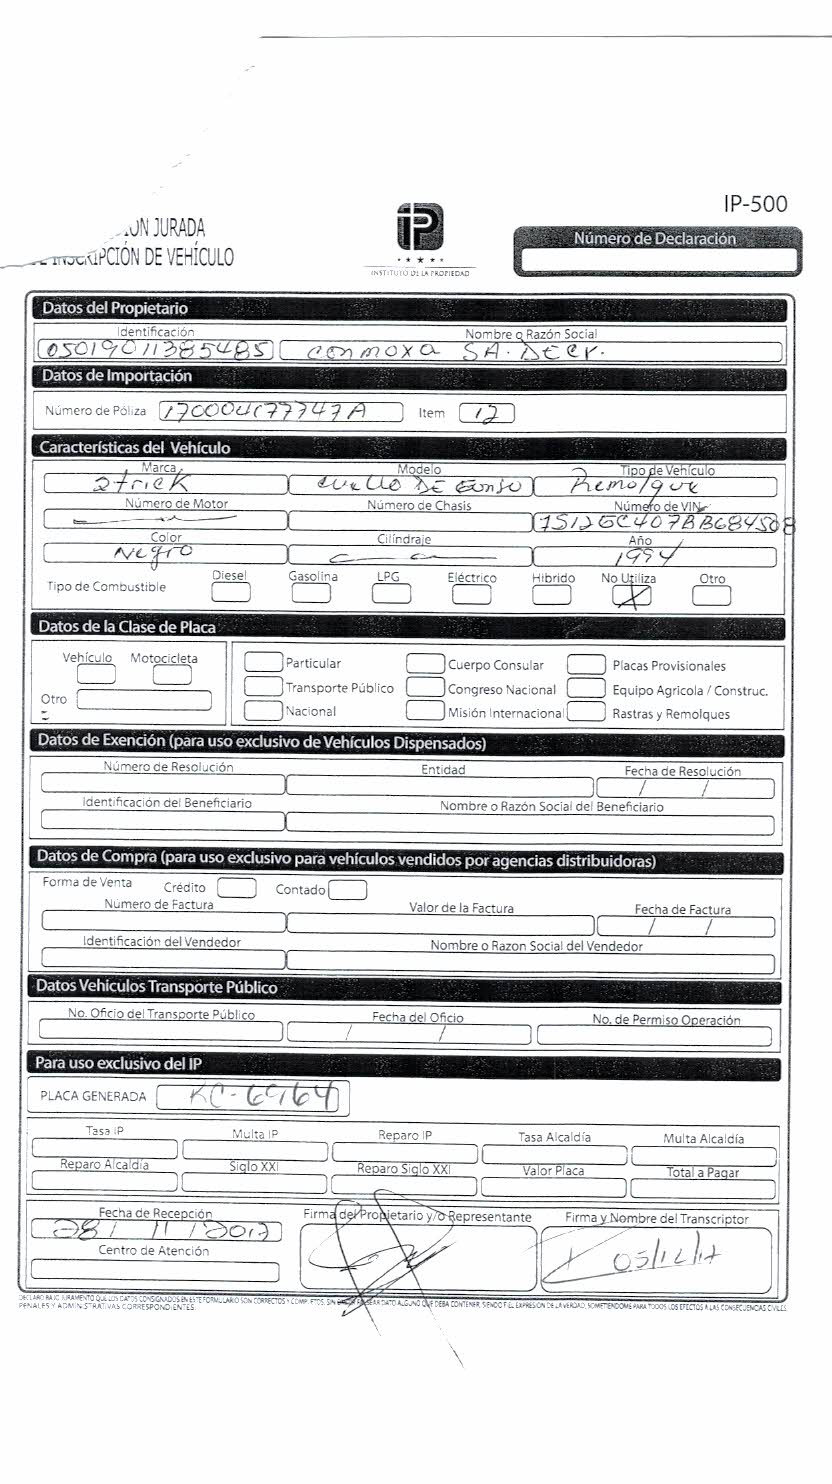 IP-500
IÓN JURADA
Número de Declaración
E INSCRIPCIÓN DE VEHÍCULO
IP
INSTITUTO DE LA PROPIEDAD
Datos del Propietario
Identificación Nombre o Razón Social
05019011385485 conmoxa SA. DE CV.
Datos de Importación
Número de Póliza Item 12
Características del Vehículo
Marca Modelo Tipo de Vehículo
Strick CUELLO DE GANSO Remolque
Número de Motor Número de Chasis Número de VIN
1S12GC407BB684508
Color Cilíndraje Año
Negro 1994
Tipo de Combustible Diesel Gasolina LPG Eléctrico Híbrido No Utiliza Otro
X
Datos de la Clase de Placa
Vehículo Motocicleta Particular Cuerpo Consular Placas Provisionales
Otro Transporte Público Congreso Nacional Equipo Agricola / Construc.
Nacional Misión Internacional Rastras y Remolques
Datos de Exención (para uso exclusivo de Vehículos Dispensados)
Número de Resolución Entidad Fecha de Resolución
/ /
Identificación del Beneficiario Nombre o Razón Social del Beneficiario
Datos de Compra (para uso exclusivo para vehículos vendidos por agencias distribuidoras)
Forma de Venta Crédito Contado
Número de Factura Valor de la Factura Fecha de Factura
/ /
Identificación del Vendedor Nombre o Razon Social del Vendedor
Datos Vehículos Transporte Público
No. Oficio del Transporte Público Fecha del Oficio No. de Permiso Operación
/ /
Para uso exclusivo del IP
PLACA GENERADA RC-6964
Tasa IP Multa IP Reparo IP Tasa Alcaldía Multa Alcaldía
Reparo Alcaldía Siglo XXI Reparo Siglo XXI Valor Placa Total a Pagar
Fecha de Recepción Firma del Propietario y/o Representante Firma y Nombre del Transcriptor
28/ 11 /2017
Centro de Atención 05/12/17
DECLARO BAJO JURAMENTO QUE LOS DATOS CONSIGNADOS EN ESTE FORMULARIO SON CORRECTOS Y COMPLETOS, SIN FALSEAR DATO ALGUNO QUE DEBA CONTENER, SIENDO FIEL EXPRESION DE LA VERDAD, SOMETIENDOME PARA TODOS LOS EFECTOS A LAS CONSECUENCIAS CIVILES,
PENALES Y ADMINISTRATIVAS CORRESPONDIENTES.